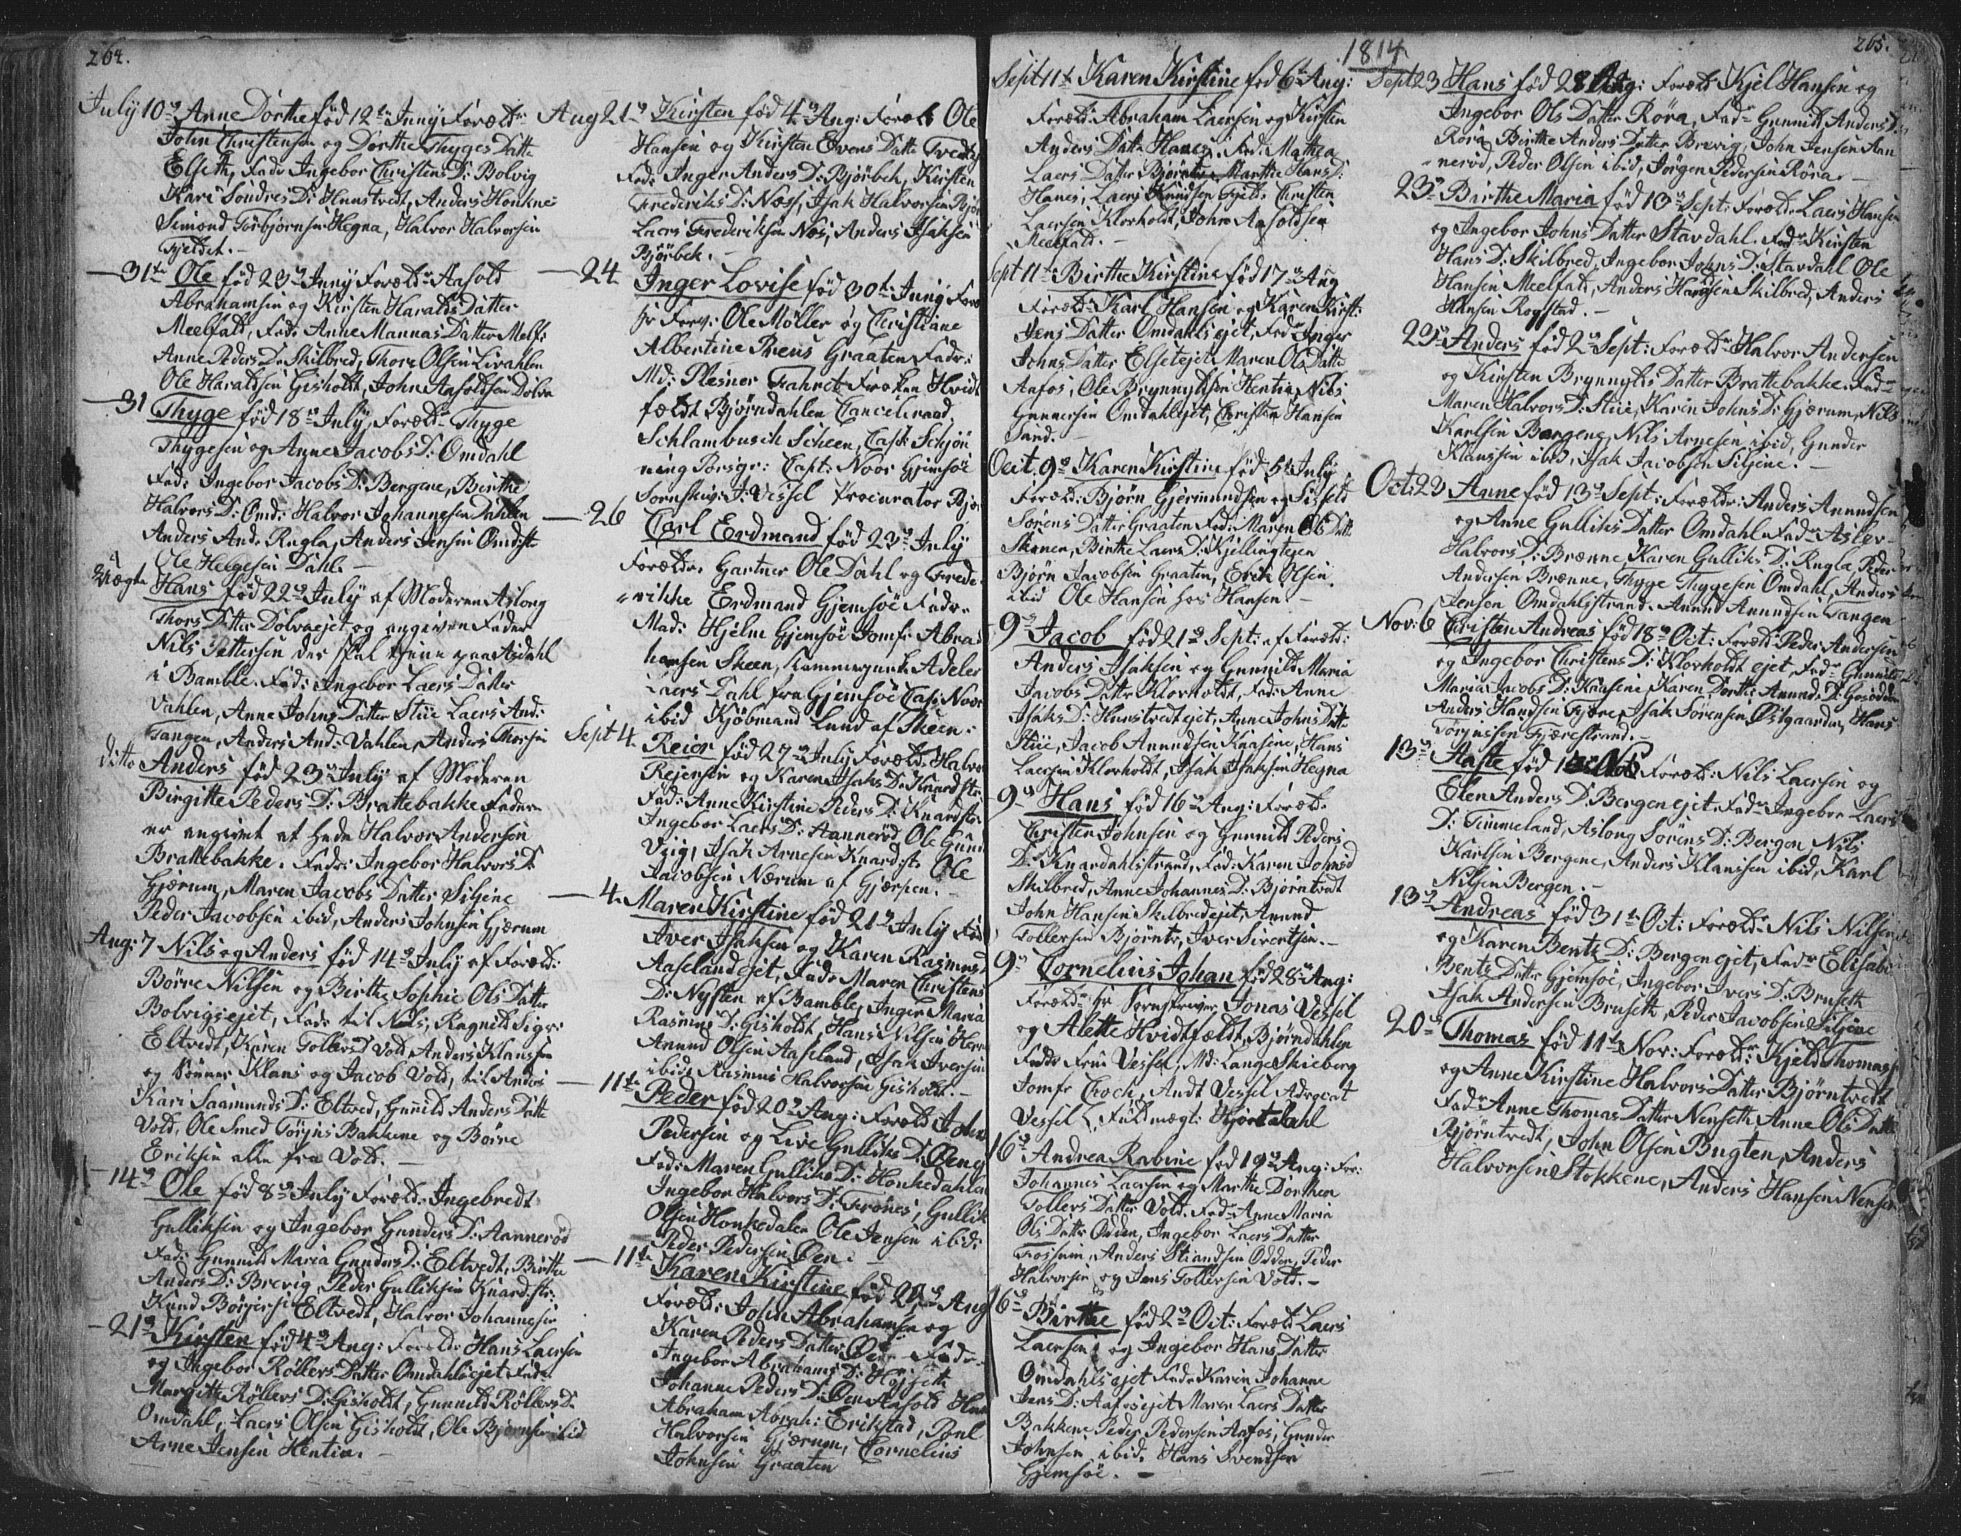 264.
July 10de Anne Dorthe föd 12te Juny Foræld.
John Christensen og Dorthe Thyges Datte
Elseth, Fadr Ingebor Christens D: Bolvig
Kari Sondres D: Hunstvedt, Anders Honkne
Simond Torbjørnsen Hegna, Halvor Halvorsen
Fjeldet. -
- 31te Ole föd 23de Juny Foræld: Aasold
Abrahamsen og Kirsten Haralds Datter
Meelfald, Fad: Anne Mannas Datter Melf:
Anne Peders D: Skilbred, Thore Olsen Livahlen
Ole Haraldsen Gisholdt, John Aasoldsen Dolva
- 31 Thyge föd 18de July, Foræld: Thyge
Thygesen og Anne Jacobs D: Omdahl
Fad: Ingebor Jacobs D: Bergene, Birthe
Halvors D: Omd: Halvor Johannesen Dahlen
Anders And: Rugla, Anders Jensen Omd:str
Ole Helgesen Dahl. -
Hans föd 22de July af Moderen Aslong
Thors Datter Dolva ejet og angiven Fader
Nils Pettersen der skal tjene paa Asdahl
i Bamble. Fad: Ingebor Laers Datter
Vahlen, Anne Johns Datter Stüe Laers And:
Tangen, Anders And: Vahlen, Anders Thorsen
ditto Anders föd 23de July af Moderen
Birgitte Peders D: Brattebakke Faderen
er angivet at hede Halvor Andersen
Brattebakke. Fadr: Ingebor Halvors D:
Gjærum, Maren Jacobs Datter Siljene
Peder Jacobsen ibid, Anders Johnsen Gjærum
Aug: 7 Nils og Anders föd 14de July af Foræld:
Börre Nilsen og Birthe Sophie Ols Datter
Bolvigsejet, Fad: til Nils, Ragnild Sigr:
Eltvedt, Karen Tollers D Vold, Anders Klausen
og Sønner Klaus og Jacob Vold, til Anders
Kari Saamunds D: Eltved, Gunild Anders Datt
Vold, Ole Smed Törgus Bakkene og Börre
Eriksen alle fra Vold. -
- 14de Ole föd 8de July Foræld: Ingebredt
Gulliksen og Ingebor Gunders D: Aannerød
Fad: Gunnild Maria Gunders D: Eltvedt, Birthe
Anders D: Brevig, Peder Gulliksen Knard:str:
Knud Børgersen Eltvedt, Halvor Johannesen
- 21de Kirsten föd 4de Aug: Foræld: Hans Laersen
og Ingebor Röllers Datter Omdahlsejet Fad:
Margitte Röllers D: Gisholdt, Gunnild Röllers D:
Omdahl, Laers Olsen Gisholdt, Ole Bjørnsen ibid
Arne Jensen Hentia. -
Aug 21de Kirsten föd 4de Aug: Foræld Ole
Hansen og Kirsten Evens Datter Tvedt
Fad: Inger Anders D: Bjørbek, Kirsten
Frederiks D: Næs, Isak Halvorsen Bjør
Laers Frederiksen Nes, Anders Isaksen
Bjørbek. -
- 24 Inger Lovise föd 30te Juny Foræ
Hr Forv: Ole Møller og Christiane
Albertine Preus Graaten Fadr:
Md: Plesner Fahret Frøken Hvidt
fældt Bjørndahlen Cancelieraad
Schlambusch Scheen, Capt: Schjön
ning Porsgr: Capt: Noor Gjemsöe
Sornskriv: J: Vessel Procurator Bjø
- 26 Carl Erdmand föd 23de July
Foræld: Gartner Ole Dahl og Frede-
rikke Erdmand Gjemsöe Fadr.
Mad: Hjelm Gjemsöe Jomf: Abra
hamsen Skeen, Kammerjunk Adeler
Laers Dahl fra Gjemsöe Capt: Noor
ibid Kjöbmand Lund af Skeen:
Sept 4. Reior föd 27de July Foræld: Halvor
Rejersen og Karen Isaks D: Knard:str:
Fad: Anne Kirstine Peders D: Knardstr.
Ingebor Laers D: Aannerød Ole Gun
Vüg, Isak Arnesen Knard:str Ole
Jacobsen Nærum af Gjerpen. -
- 4. Maren Kirstine föd 21de July Foræ
Iver Isaksen og Karen Rasmus
Aaseland ejet, Fad: Maren Christens
D: Nysten af Bamble, Inger Maria
Rasmus D: Gisholdt, Hans Nilsen Herr
Anund Olsen Aaseland, Isak Iversen
ibid, Rasmus Halvorsen Gisholdt. -
- 11te Peder föd 20de Aug: Foræld John
Pedersen og Live Gulliks D: Øen ej
Fad: Maren Gulliks D: Honkedahlen
Ingebor Halvors D: Trönes, Gullik
Olsen Honkedalen Ole Jensen ibid:
Peder Pedersen Øen. -
- 11te Karen Kirstine föd 22de Aug
Foræld: John Abrahamsen og
Karen Peders Datter Øen - Fadr.
Ingebor Abrahams D: Höjseth
Johanne Peders D: Øen Aasold Hans
Abraham Abrah: Erikstad, Poul
Halvorsen Gjærum, Cornelius
Johnsen Graaten
1814
265.
Sept 11te Karen Kirstine föd 6te Aug:
Foræld: Abraham Laersen og Kirsten
Anders Datt: Hanes, Fad: Mathea
Laers Datter Bjørntv: Marthe Hans D:
Hanes, Laers Knudsen Fjeld, Christen
Laersen Klovholdt, John Aasoldsen
Meelfald. -
Sept 11te Birthe Kirstine föd 17de Aug
Foræld: Karl Hansen og Karen Kirst:
Jens Datter Omdahlsejet, Fadr Inger
Johns Datter Elsetejet: Maren Ols Datte
Aafos, Ole Brynnyldsen Hentia, Nils
Gunnersen Omdahlejet, Christen Hansen
Sund. -
Oct. 9de Karen Kirstine föd 5te July
Foræld: Bjørn Gjermundsen og Sisseld
Sörens Datter Graaten Fad: Maren Ols Datt
Skonen, Birthe Laers D: Kjellingtegen
Bjørn Jacobsen Graaten, Erik Olsen
ibid Ole Hansen hos Hansen. -
- 9de Jacob föd 21de Sept: af Foræld:
Anders Isaksen og Gunnild Maria
Jacobs Datter Klovholdt, Fad: Anne
Isaks D: Hunstvedt ejet, Anne Johns Datt
Stüe, Jacob Anundsen Knasene, Hans
Laersen Klovholdt, Isak Isaksen Hegna
- 9de Hans föd 16de Aug: Foræld:
Christen Johnsen og Gunnild Peders
D: Knardahlsstrand, Fad: Karen Johns D
Skilbred, Anne Johannes D: Bjørntvedt
John Hansen Skilbredejet, Anund
Tollersen Bjørntv, Iver Sivertsen. -
9de Cornelius Johan föd 28de Aug:
Foræld: Hr Sornskriver Jonas Vessel
og Alette Hvidtfældt, Bjørndahlen
Fadr Frue Vessel, Md: Lange Skieberg
Jomfr Croch, Andt Vessel Advocat
Vessel & Fuldmægt: Hjortdahl
16de Andrea Rabine föd 19de Aug: For:
Johannes Laersen og Marthe Dorthea
Tollers Datter Vold. Fadr Anne Maria
Ols Datter Odden, Ingebor Laers Datter
Fossum, Anders Strandsen Odden, Peder
Halvorsen og Jens Tollersen Vold. -
16de Birthe föd 2de Oct: Foræld Laers
Laersen og Ingebor Hans Datter
Omdahlsejet Fad: Karin Johanne
Jens D: Aafosejet Maren Laers Datter
Bakkene Peder Pedersen Aafos, Gunder
Johnsen ibid, Hans Svendsen
Gjemsöe. -
Sept 23 Hans föd 28 Aug: Foræld Kjel Hansen og
Ingebor Ols Datter Röra, Fadr Gunnild Anders D:
Röra Birthe Anders Datter Brevig, John Jensen Aan
nerød, Peder Olsen ibid, Jörgen Pedersen Röra. -
23de Birthe Maria föd 13de Sept: Foræld: Laers Hansen
og Ingebor Johns Datter Stavdahl. Fadr Kirsten
Hans D: Skilbred, Ingebor Johns D: Stavdahl Ole
Hansen Meelfald, Anders Hansen Skilbred, Anders
Hansen Rogstad. -
23de Anders föd 2de Sept: Foræld Halvor Andersen
og Kirsten Brynnylds Datter Brattebakke. Fadr
Maren Halvors D: Stüe, Karen Johns D: Gjærum, Nils
Karlsen Bergene, Nils Arnesen ibid, Gunder
Klaussen ibid, Isak Jacobsen Siljene. -
Oct: 23 Anne föd 13de Sept: Foræld: Anders Anundsen
og Anne Gulliks Datter Omdahl Fadr Aslev
Halvors D: Brænne Karen Gulliks D: Rugla, Peder
Andersen Brænne, Thyge Thygesen Omdahl, Anders
Jensen Omdahlstrand, Anund Anundsen Tangen
Nov: 6 Christen Andreas föd 18de Oct: Foræld: Peder Andersen
og Ingebor Christens D: Klovholdt ejet, Fadr Gunnild
Maria Jacobs D: Knasene, Karen Dorthe Anunds D: Gosodden
Anders Handsen Fjære, Isak Sörensen Østgaarden, Hans
Törgussen Fjærestrand. -
13de Aaste föd Foræld: Nils Laersen og
Elen Anders D: Bergenejet. Fadr Ingebor Laers
D: Timmeland, Aslong Sörens D: Bergen Nils
Karlsen Bergene, Anders Klausen ibid, Karl
Nilsen Bergen. -
13de Andreas föd 31te Oct: Foræld: Nils Nilsen
og Karen Bents D: Bergenejet, Fadr Elisabe
Bents Datter Gjemsöe, Ingebor Ivers D: Bruseth
Isak Andersen Bruseth, Peder Jacobsen Siljene
20de Thomas föd 11te Nov: Foræld: Kjeld Thomas
og Anne Kirstine Halvors Datter Bjørntvedt
Fadr Anne Thomas Datter Nenseth Anne Ols Datt
Bjørntvedt, John Olsen Bugten, Anders
Halvorsen Stokkene, Anders Hansen Nense